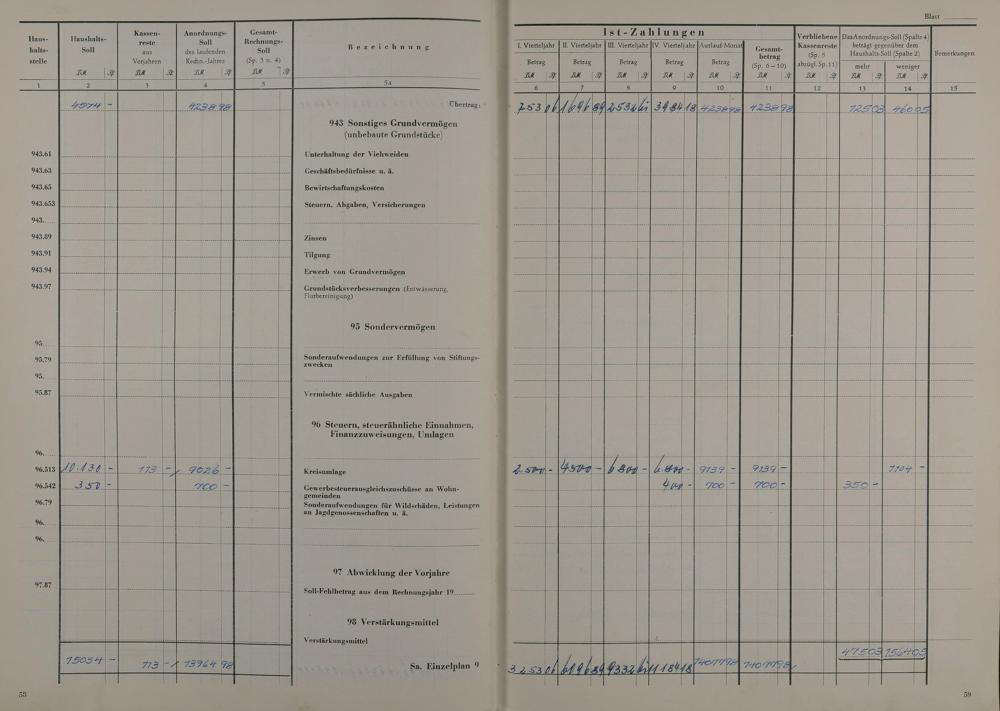 Haus-
halts-
stelle
Haushalts-
Soll
Kassen-
reste
aus
Vorjahren
Anordnungs-
Soll
des laufenden
Rechn.-Jahres
Gesamt-
Rechnungs-
Soll
(Sp. 3 u. 4)
Bezeichnung
1 2 3 4 5 5a
4574 - 423898 Übertrag:
943 Sonstiges Grundvermögen
(unbebaute Grundstücke)
943.61 Unterhaltung der Viehweiden
943.63 Geschäftsbedürfnisse u. ä.
943.65 Bewirtschaftungskosten
943.653 Steuern, Abgaben, Versicherungen
943.
943.89 Zinsen
943.91 Tilgung
943.94 Erwerb von Grundvermögen
943.97 Grundstücksverbesserungen (Entwässerung,
Flurbereinigung)
95 Sondervermögen
95.
95.79 Sonderaufwendungen zur Erfüllung von Stiftungs-
zwecken
95.
95.87 Vermischte sächliche Ausgaben
96 Steuern, steuerähnliche Einnahmen,
Finanzzuweisungen, Umlagen
96.
96.513 10.130 - 113 - 9026 - Kreisumlage
96.542 350 - 700 - Gewerbesteuerausgleichszuschüsse an Wohn-
gemeinden
96.79 Sonderaufwendungen für Wildschäden, Leistungen
an Jagdgenossenschaften u. ä.
96.
96.
97 Abwicklung der Vorjahre
97.87 Soll-Fehlbetrag aus dem Rechnungsjahr 19
98 Verstärkungsmittel
Verstärkungsmittel
15054 - 113 - 1396498 Sa. Einzelplan 9
58
Blatt
Ist-Zahlungen
I. Vierteljahr II. Vierteljahr III. Vierteljahr IV. Vierteljahr Auslauf-Monat
Betrag Betrag Betrag Betrag Betrag
Gesamt-
betrag
(Sp. 6–10)
Verbliebene
Kassenreste
(Sp. 5
abzügl. Sp. 11)
Das Anordnungs-Soll (Spalte 4)
beträgt gegenüber dem
Haushalts-Soll (Spalte 2)
mehr weniger
Bemerkungen
6 7 8 9 10 11 12 13 14 15
423898 423898 72503
2500 - 4500 - 9139 - 9139 - 1104 -
400 - 700 - 700 - 350 -
47503 156405
1407798 1407798
59